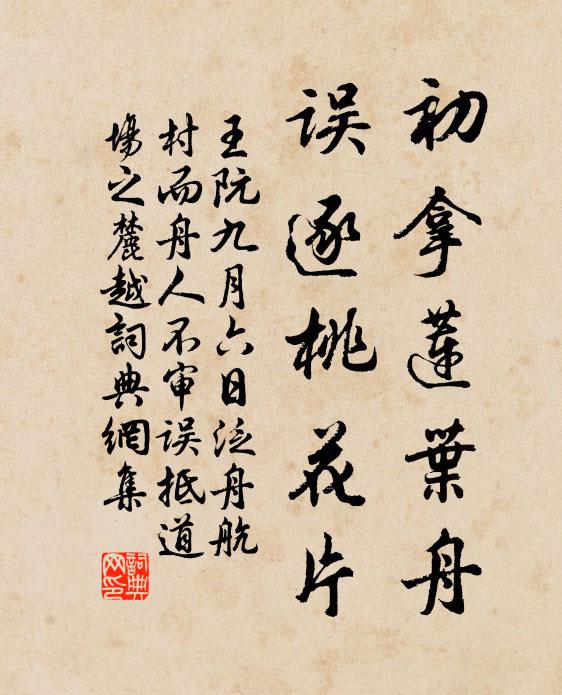 初拿莲葉舟
误逐桃花片
王阮九月六日泛舟航
村而舟人不审误抵道
場之麓越詞典網集
詞典
网印